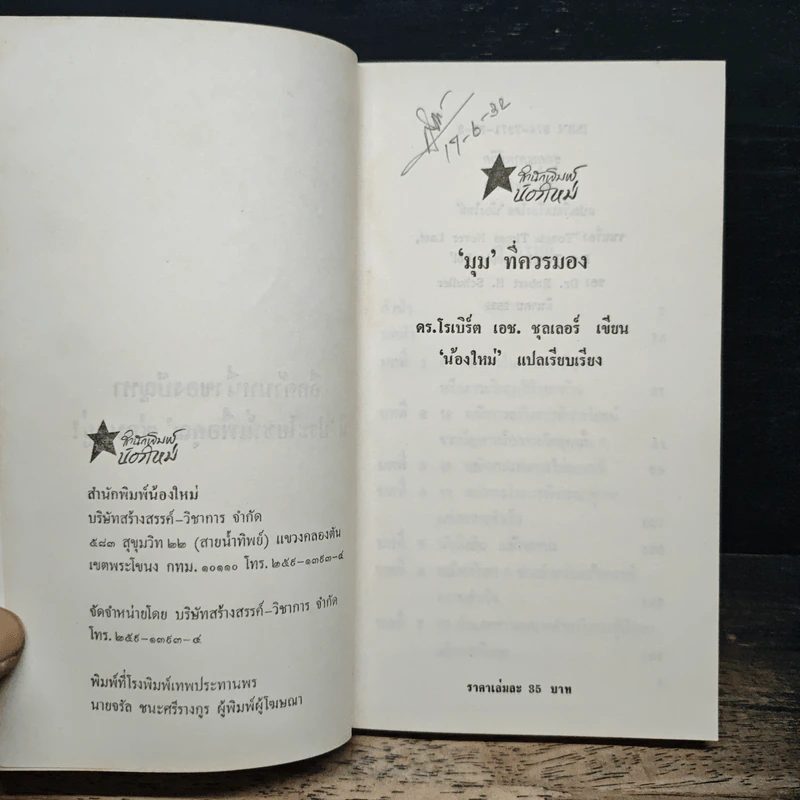 สำนักพิมพ์
น้องใหม่
สำนักพิมพ์น้องใหม่
บริษัทสร้างสรรค์-วิชาการ จำกัด
๕๘๓ สุขุมวิท ๒๒ (สายน้ำทิพย์) แขวงคลองตัน
เขตพระโขนง กทม. ๑๐๑๑๐ โทร. ๒๕๙-๑๓๙๓-๔
จัดจำหน่ายโดย บริษัทสร้างสรรค์-วิชาการ จำกัด
โทร. ๒๕๙-๑๓๙๓-๔
พิมพ์ที่โรงพิมพ์เทพประทานพร
นายจรัล ชนะศรีรางกูร ผู้พิมพ์ผู้โฆษณา
17-6-32
สำนักพิมพ์
น้องใหม่
'มุม' ที่ควรมอง
ดร.โรเบิร์ต เอช. ชุลเลอร์ เขียน
'น้องใหม่' แปลเรียบเรียง
ราคาเล่มละ 35 บาท